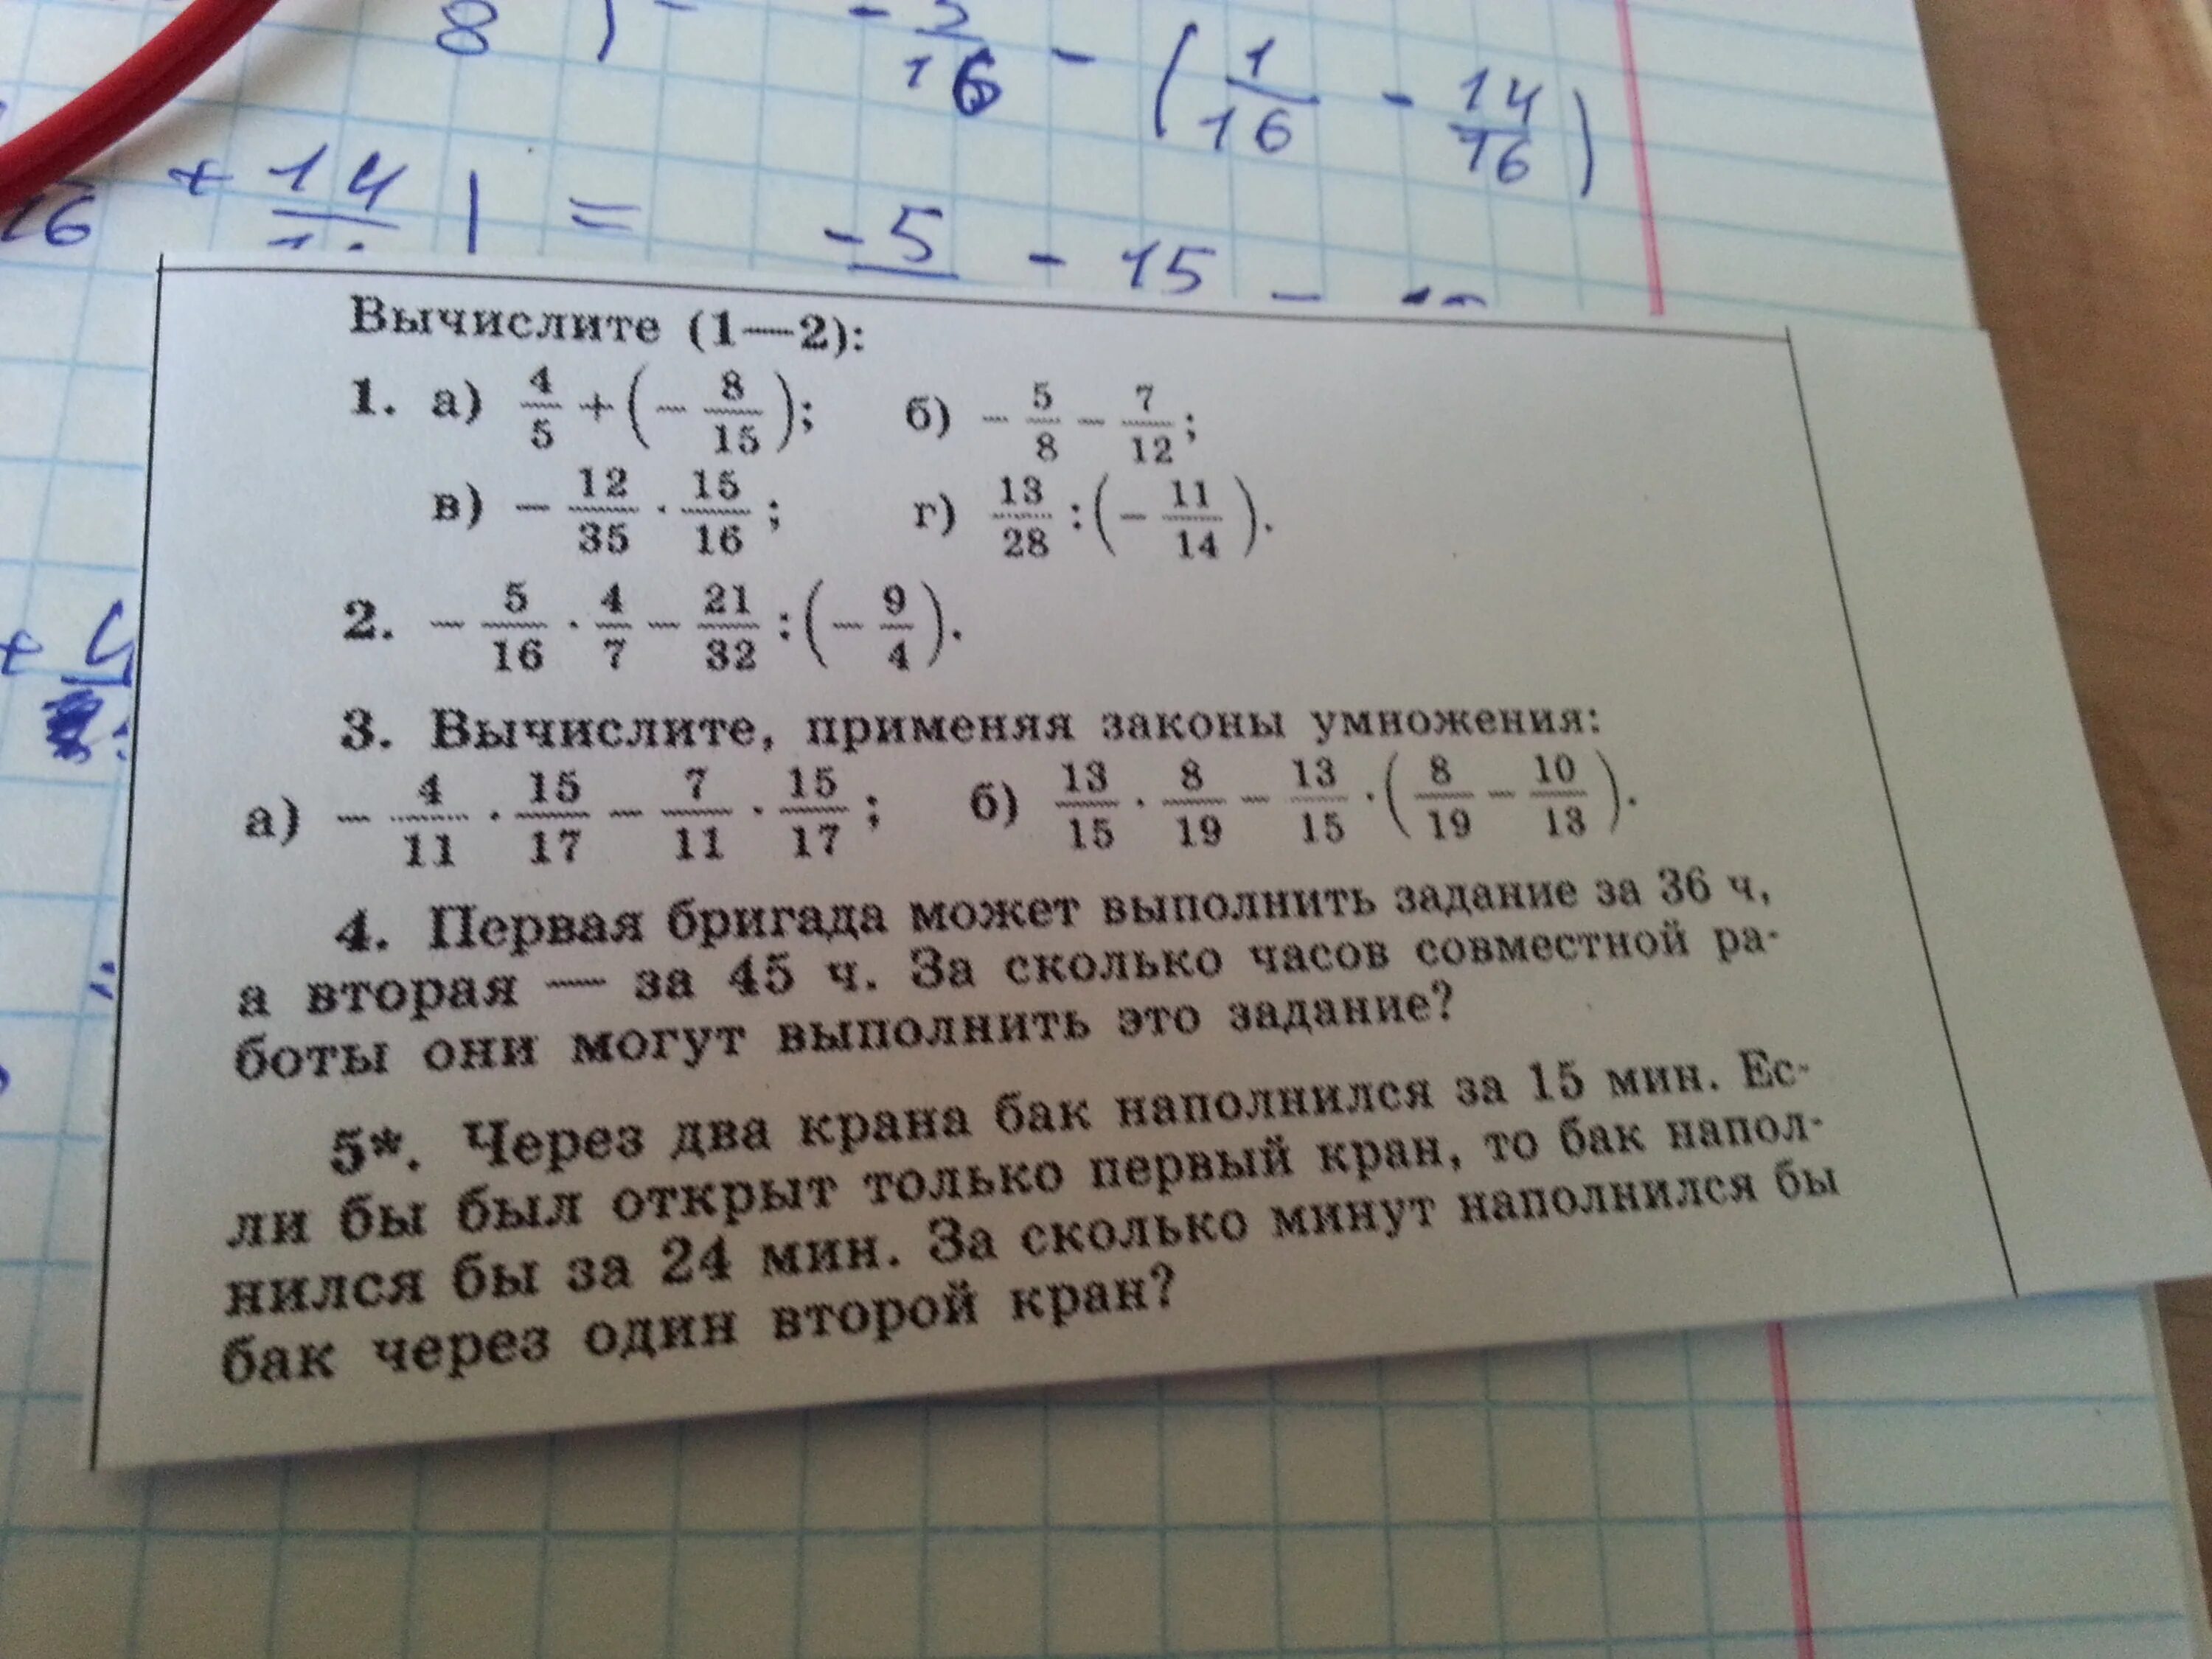 8 ) - 16 - ( 1/16 - 14/16 )
16 + 14 | = -5 - 15 -
Вычислите (1—2):
1. а) 4/5 + (- 8/15); б) - 5/8 - 7/12;
в) - 12/35 · 15/16; г) 13/28 : (- 11/14).
2. - 5/16 · 4/7 - 21/32 : (- 9/4).
+ 4
3. Вычислите, применяя законы умножения:
а) - 4/11 · 15/17 - 7/11 · 15/17; б) 13/15 · 8/19 - 13/15 · (8/19 - 10/13).
4. Первая бригада может выполнить задание за 36 ч,
а вторая — за 45 ч. За сколько часов совместной ра-
боты они могут выполнить это задание?
5*. Через два крана бак наполнился за 15 мин. Ес-
ли бы был открыт только первый кран, то бак напол-
нился бы за 24 мин. За сколько минут наполнился бы
бак через один второй кран?